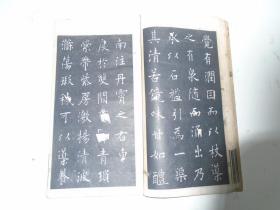 覺有潤因而以杖導
之有泉隨而涌出乃
承以石檻引為一渠
其清若鏡味甘如醴
南注丹霄之右東
度於雙闕青瑣
縈帶紫房激揚清波
滌蕩瑕穢可以導養